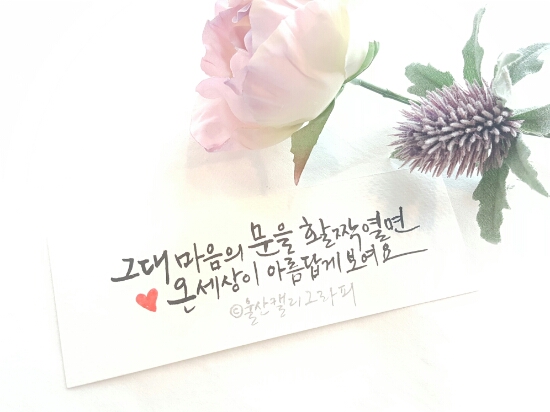 그대 마음의 문을 활짝 열면
온세상이 아름답게 보여요
©울산캘리그라피